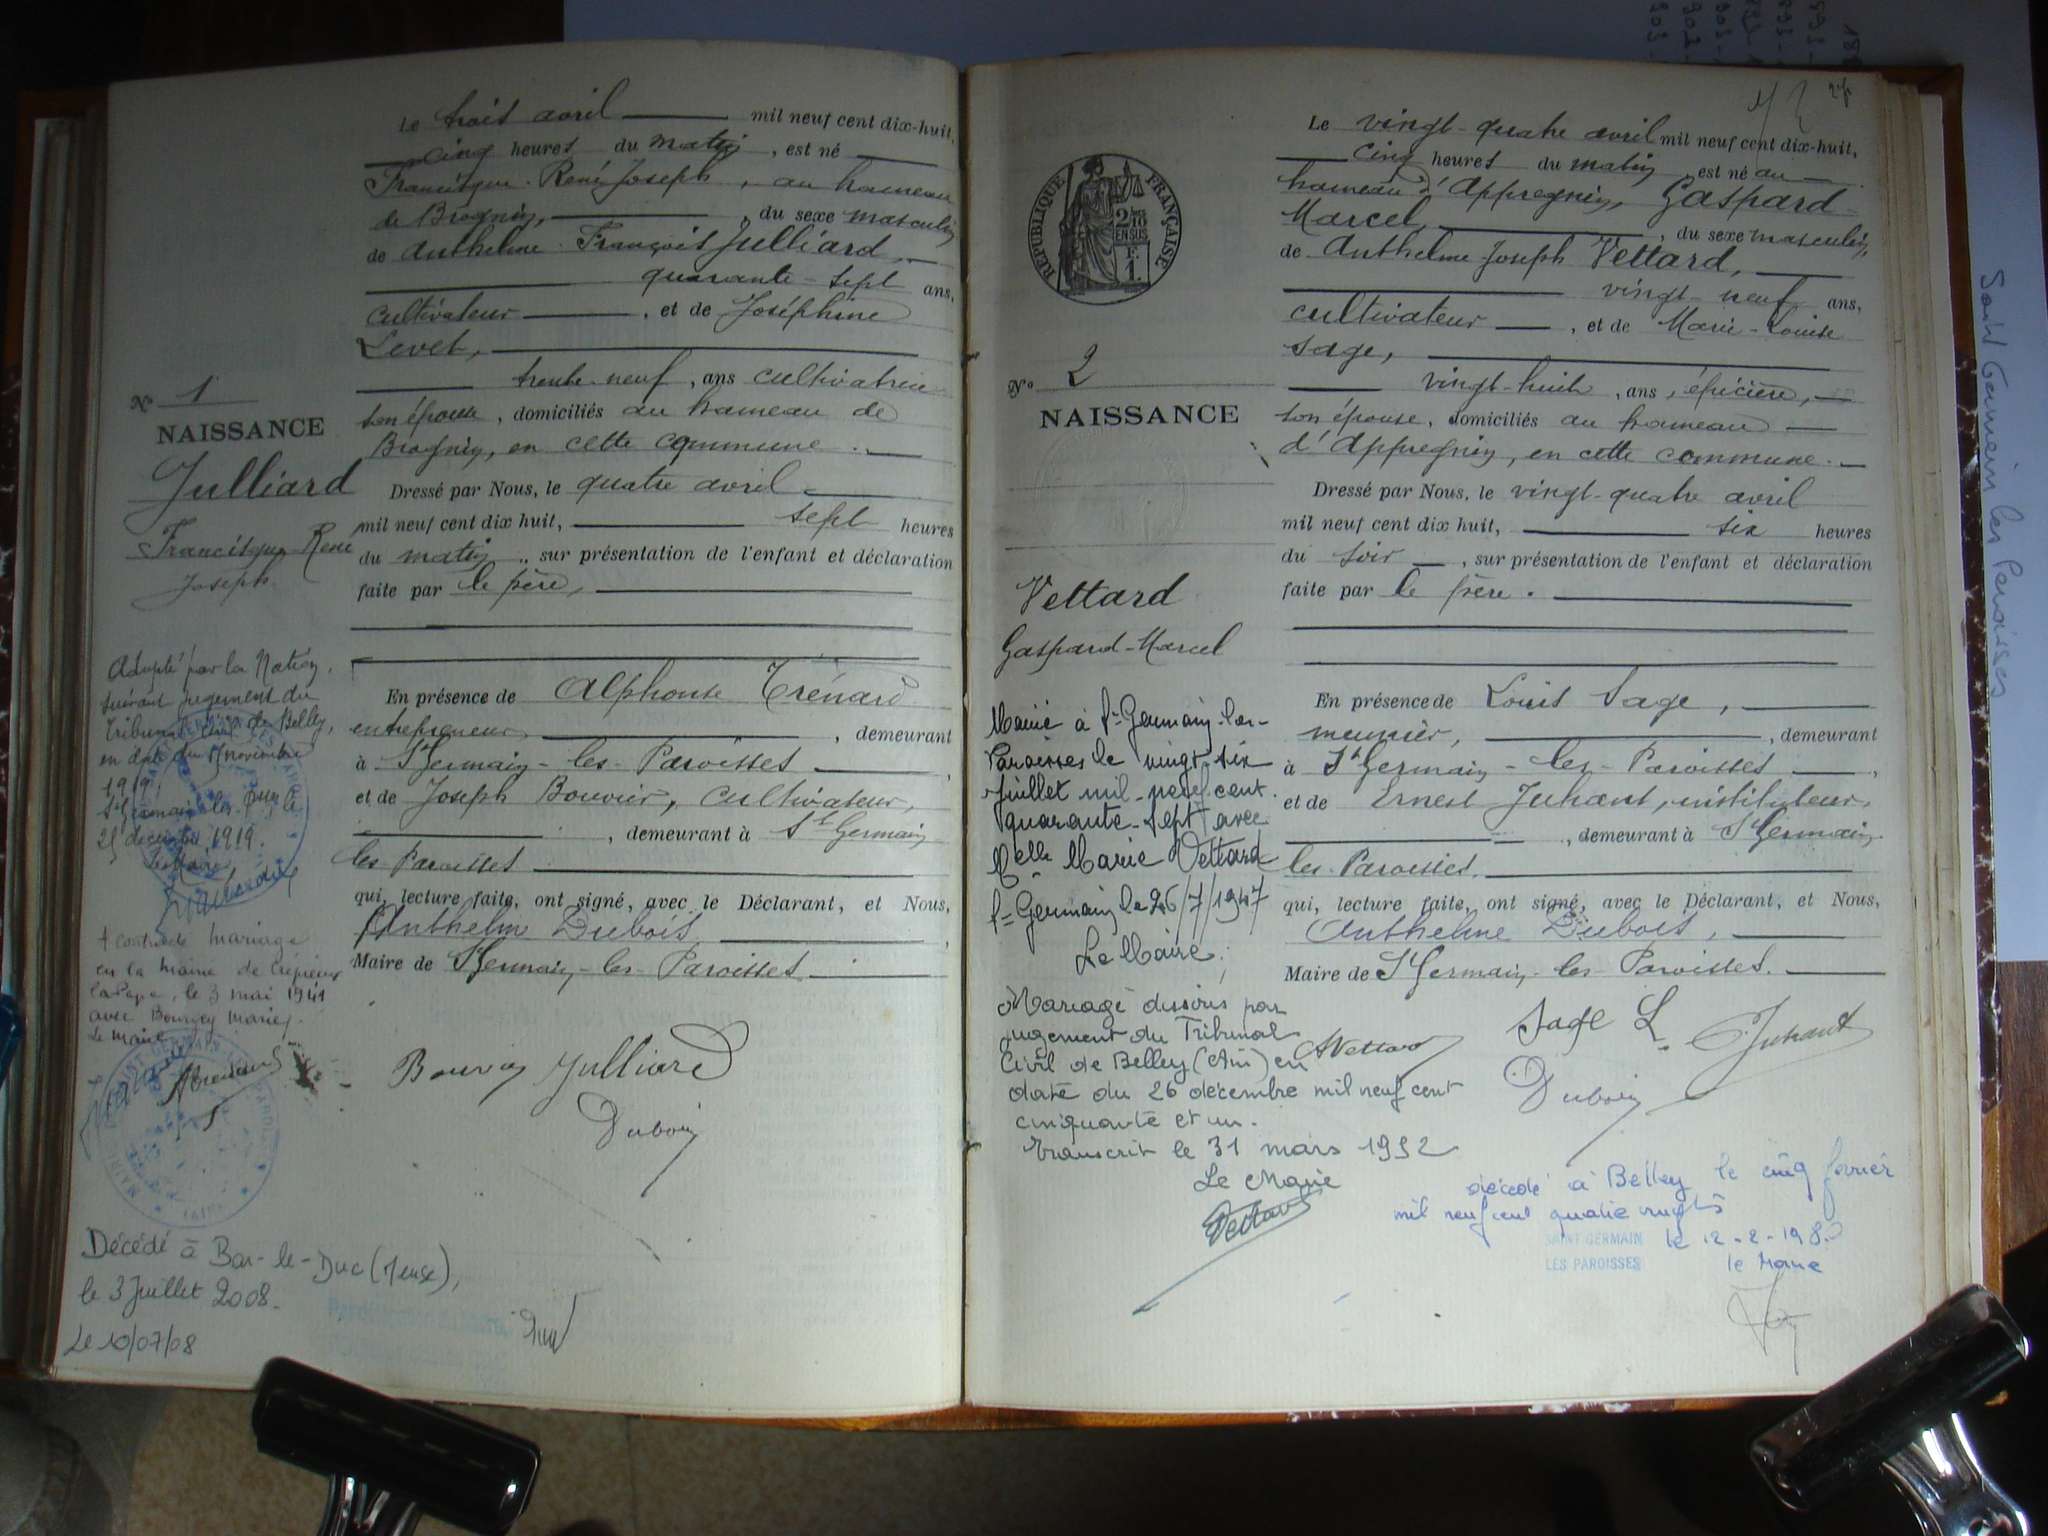 Le trois avril mil neuf cent dix-huit,
cinq heures du matin, est né
Francisque René Joseph, au hameau
de Brognin, du sexe masculin
de Anthelme François Julliard,
quarante-sept ans,
cultivateur, et de Joséphine
Levet,
trente-neuf, ans cultivatrice
son épouse, domiciliés au hameau de
Brognin, en cette commune.
Dressé par Nous, le quatre avril
mil neuf cent dix huit, sept heures
du matin, sur présentation de l'enfant et déclaration
faite par le père,
En présence de Alphonse Trénard
entrepreneur, demeurant
à St Germain-les-Paroisses,
et de Joseph Bouvier, cultivateur,
, demeurant à St Germain
les Paroisses
qui, lecture faite, ont signé, avec le Déclarant, et Nous,
Anthelme Dubois,
Maire de St Germain-les-Paroisses.
Bouvier Julliard
Dubois
No 1
NAISSANCE
Julliard
Francisque René
Joseph
Adopté par la Nation,
suivant jugement du
Tribunal civil de Belley,
en date du novembre
1919,
St Germain-les-Par. le
25 décembre 1919.
Le Maire,
A contracté mariage
en la mairie de Crépieux
la Pape, le 3 mai 1941
avec Bourgey Marie
Le Maire
Décédé à Bar-le-Duc (Meuse),
le 3 Juillet 2008.
Le 10/07/08
Le vingt-quatre avril mil neuf cent dix-huit,
cinq heures du matin, est né au
hameau d'Appregnin, Gaspard
Marcel, du sexe masculin,
de Anthelme Joseph Vettard,
vingt-neuf ans,
cultivateur, et de Marie-Louise
Sage,
vingt-huit, ans, épicière,
son épouse, domiciliés au hameau
d'Appregnin, en cette commune.
Dressé par Nous, le vingt-quatre avril
mil neuf cent dix huit, six heures
du soir, sur présentation de l'enfant et déclaration
faite par le père.
En présence de Louis Sage,
meunier, demeurant
à St Germain-les-Paroisses,
et de Ernest Juhant, instituteur,
, demeurant à St Germain
les-Paroisses,
qui, lecture faite, ont signé, avec le Déclarant, et Nous,
Anthelme Dubois,
Maire de St Germain-les-Paroisses.
A Vettard Sage L Juhant
Dubois
RÉPUBLIQUE FRANÇAISE
2/10 EN SUS
F. 1.
No 2
NAISSANCE
Vettard
Gaspard-Marcel
Marié à St Germain-les-
Paroisses le vingt-six
juillet mil-neuf cent
quarante-sept avec
Melle Marie Vettard
St Germain le 26/7/1947
Le Maire:
Mariage dissous par
jugement du Tribunal
Civil de Belley (Ain) en
date du 26 décembre mil neuf cent
cinquante et un.
Transcrit le 31 mars 1952
Le Maire
Vettard
décédé à Belley le cinq février
mil neuf cent quatre vingts
le 12-2-1980
SAINT GERMAIN
LES PAROISSES
le Maire
Saint Germain les Paroisses